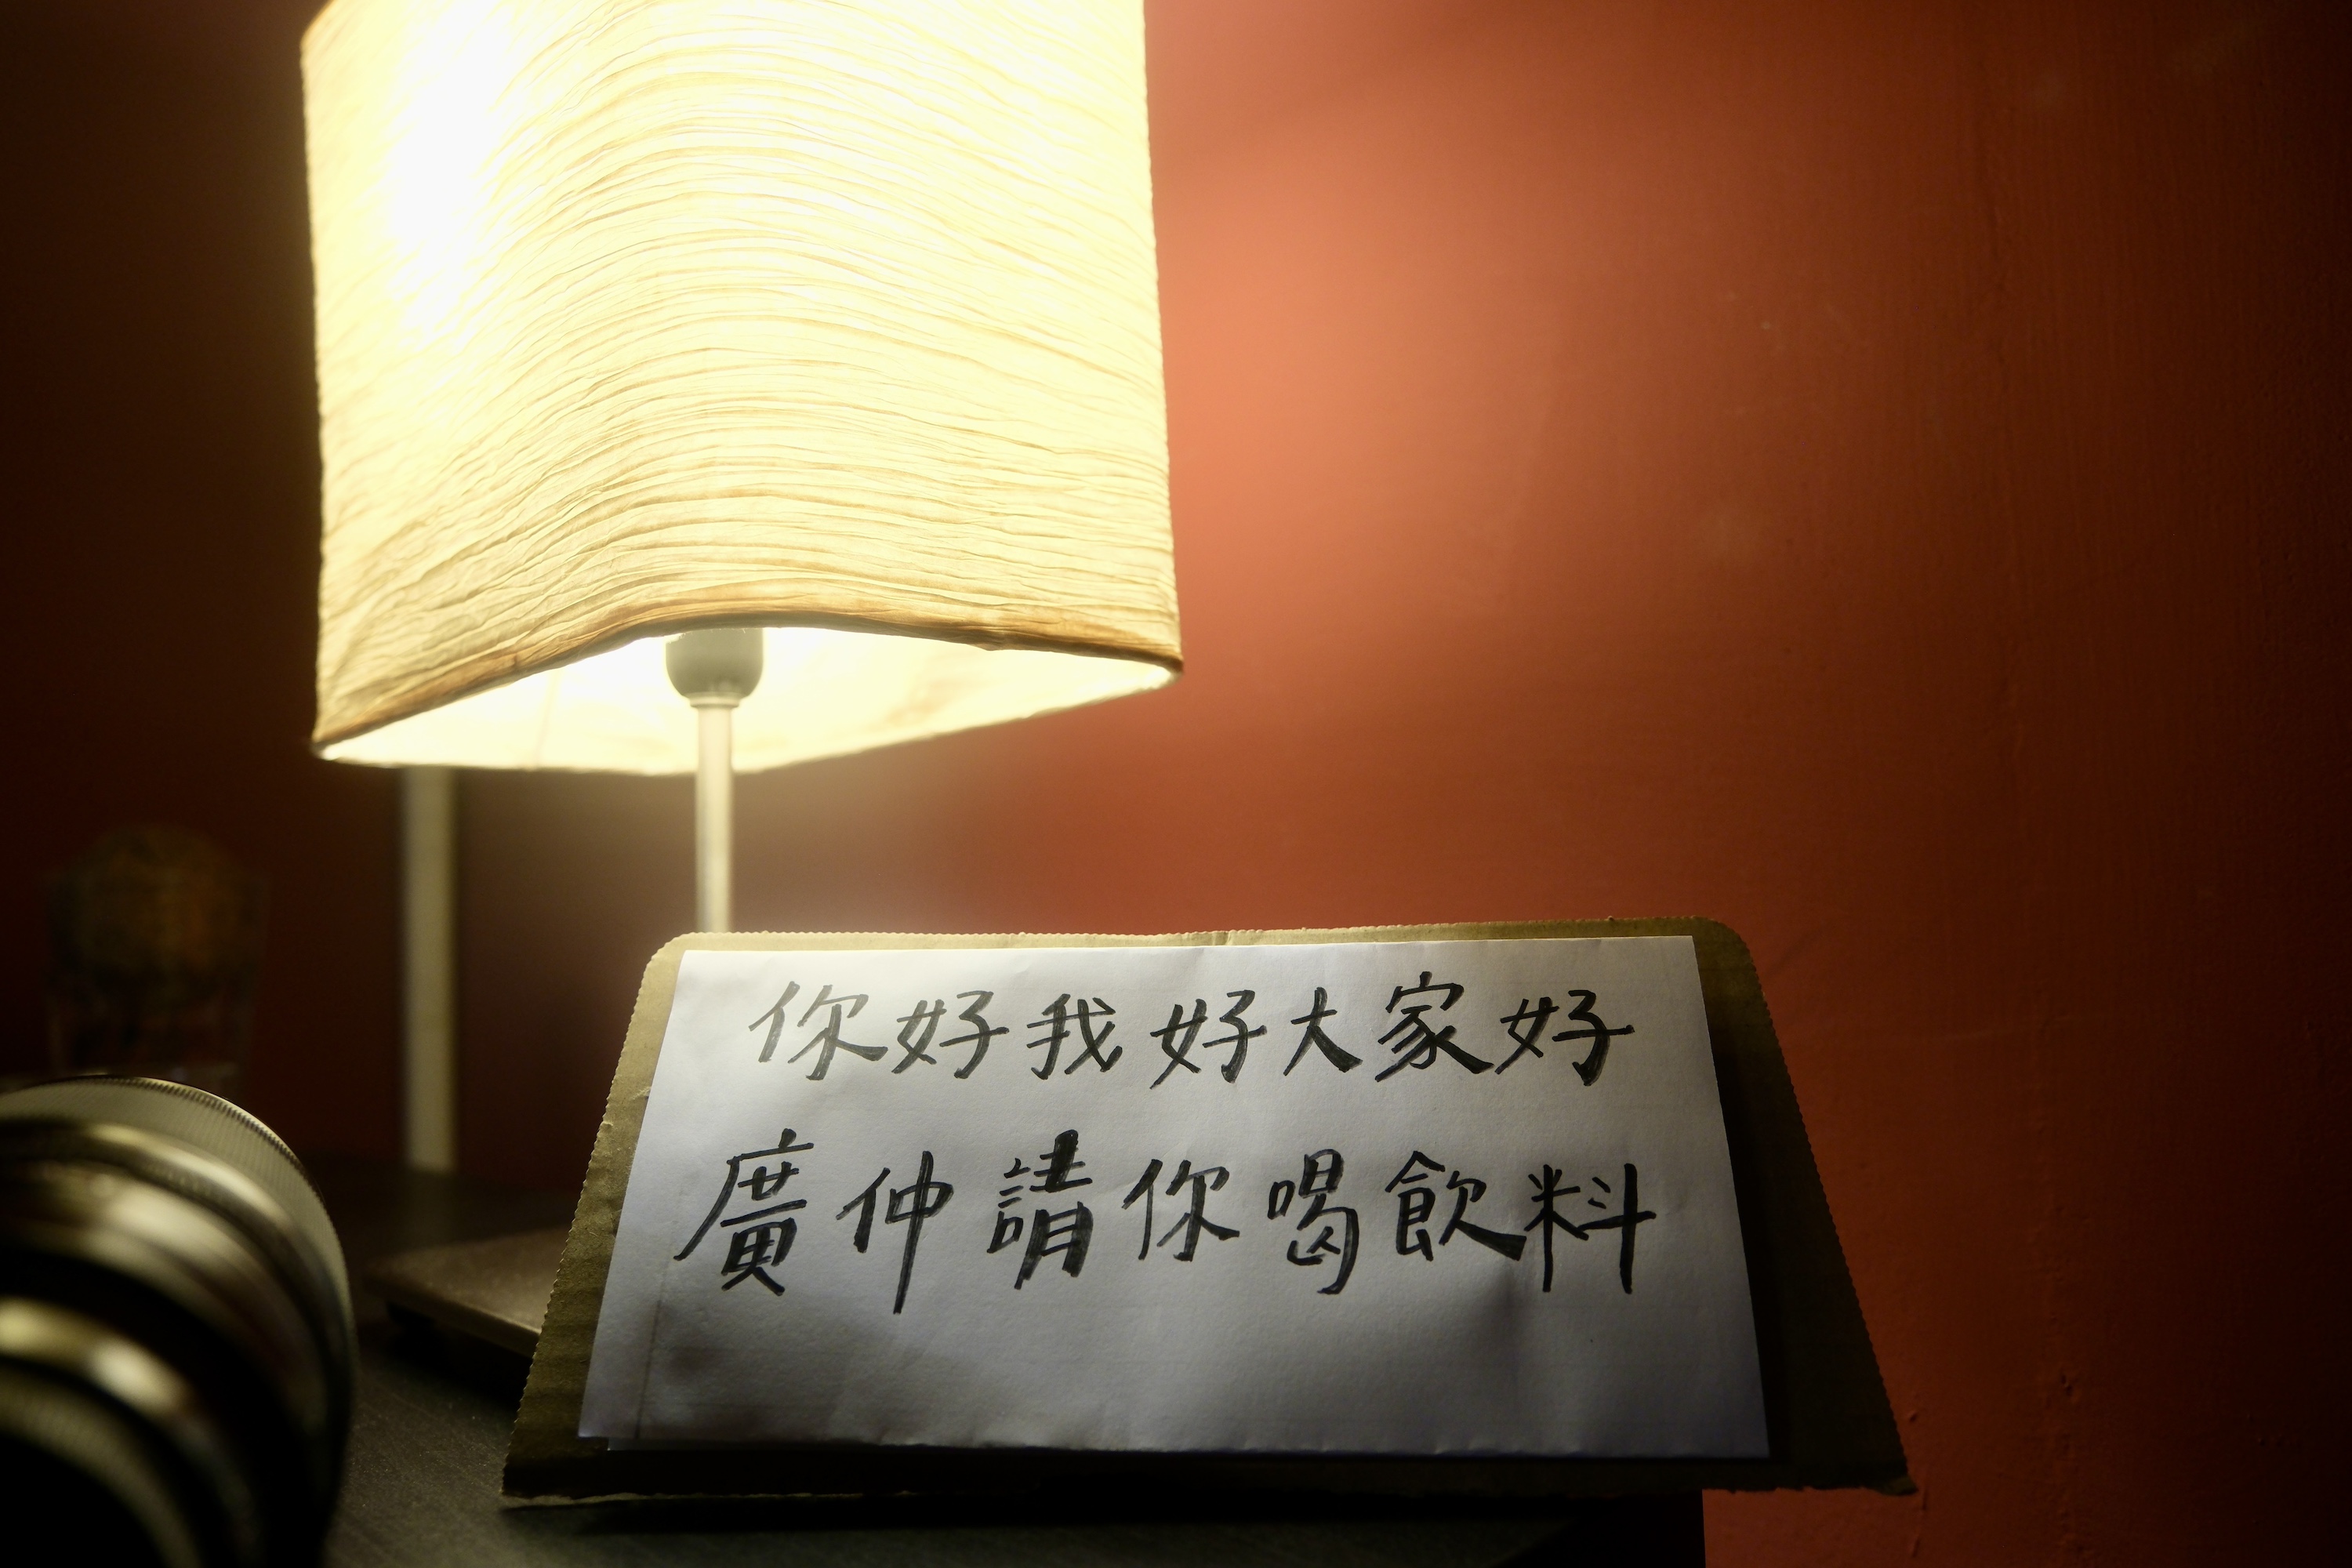 你好我好大家好
廣仲請你喝飲料